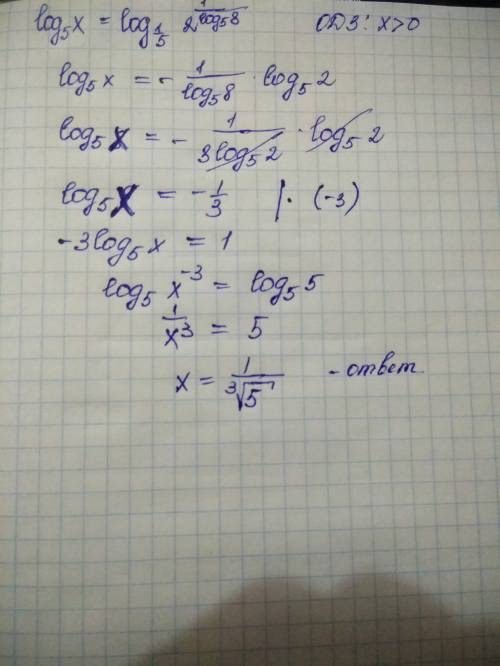 log₅x = log_{1/5} 2^{1/log₅8} ОДЗ: x>0
log₅x = - 1/log₅8 · log₅2
log₅x = - 1/(3log₅2) · log₅2
log₅x = - 1/3 |· (-3)
-3log₅x = 1
log₅x⁻³ = log₅5
1/x³ = 5
x = 1/∛5 - ответ